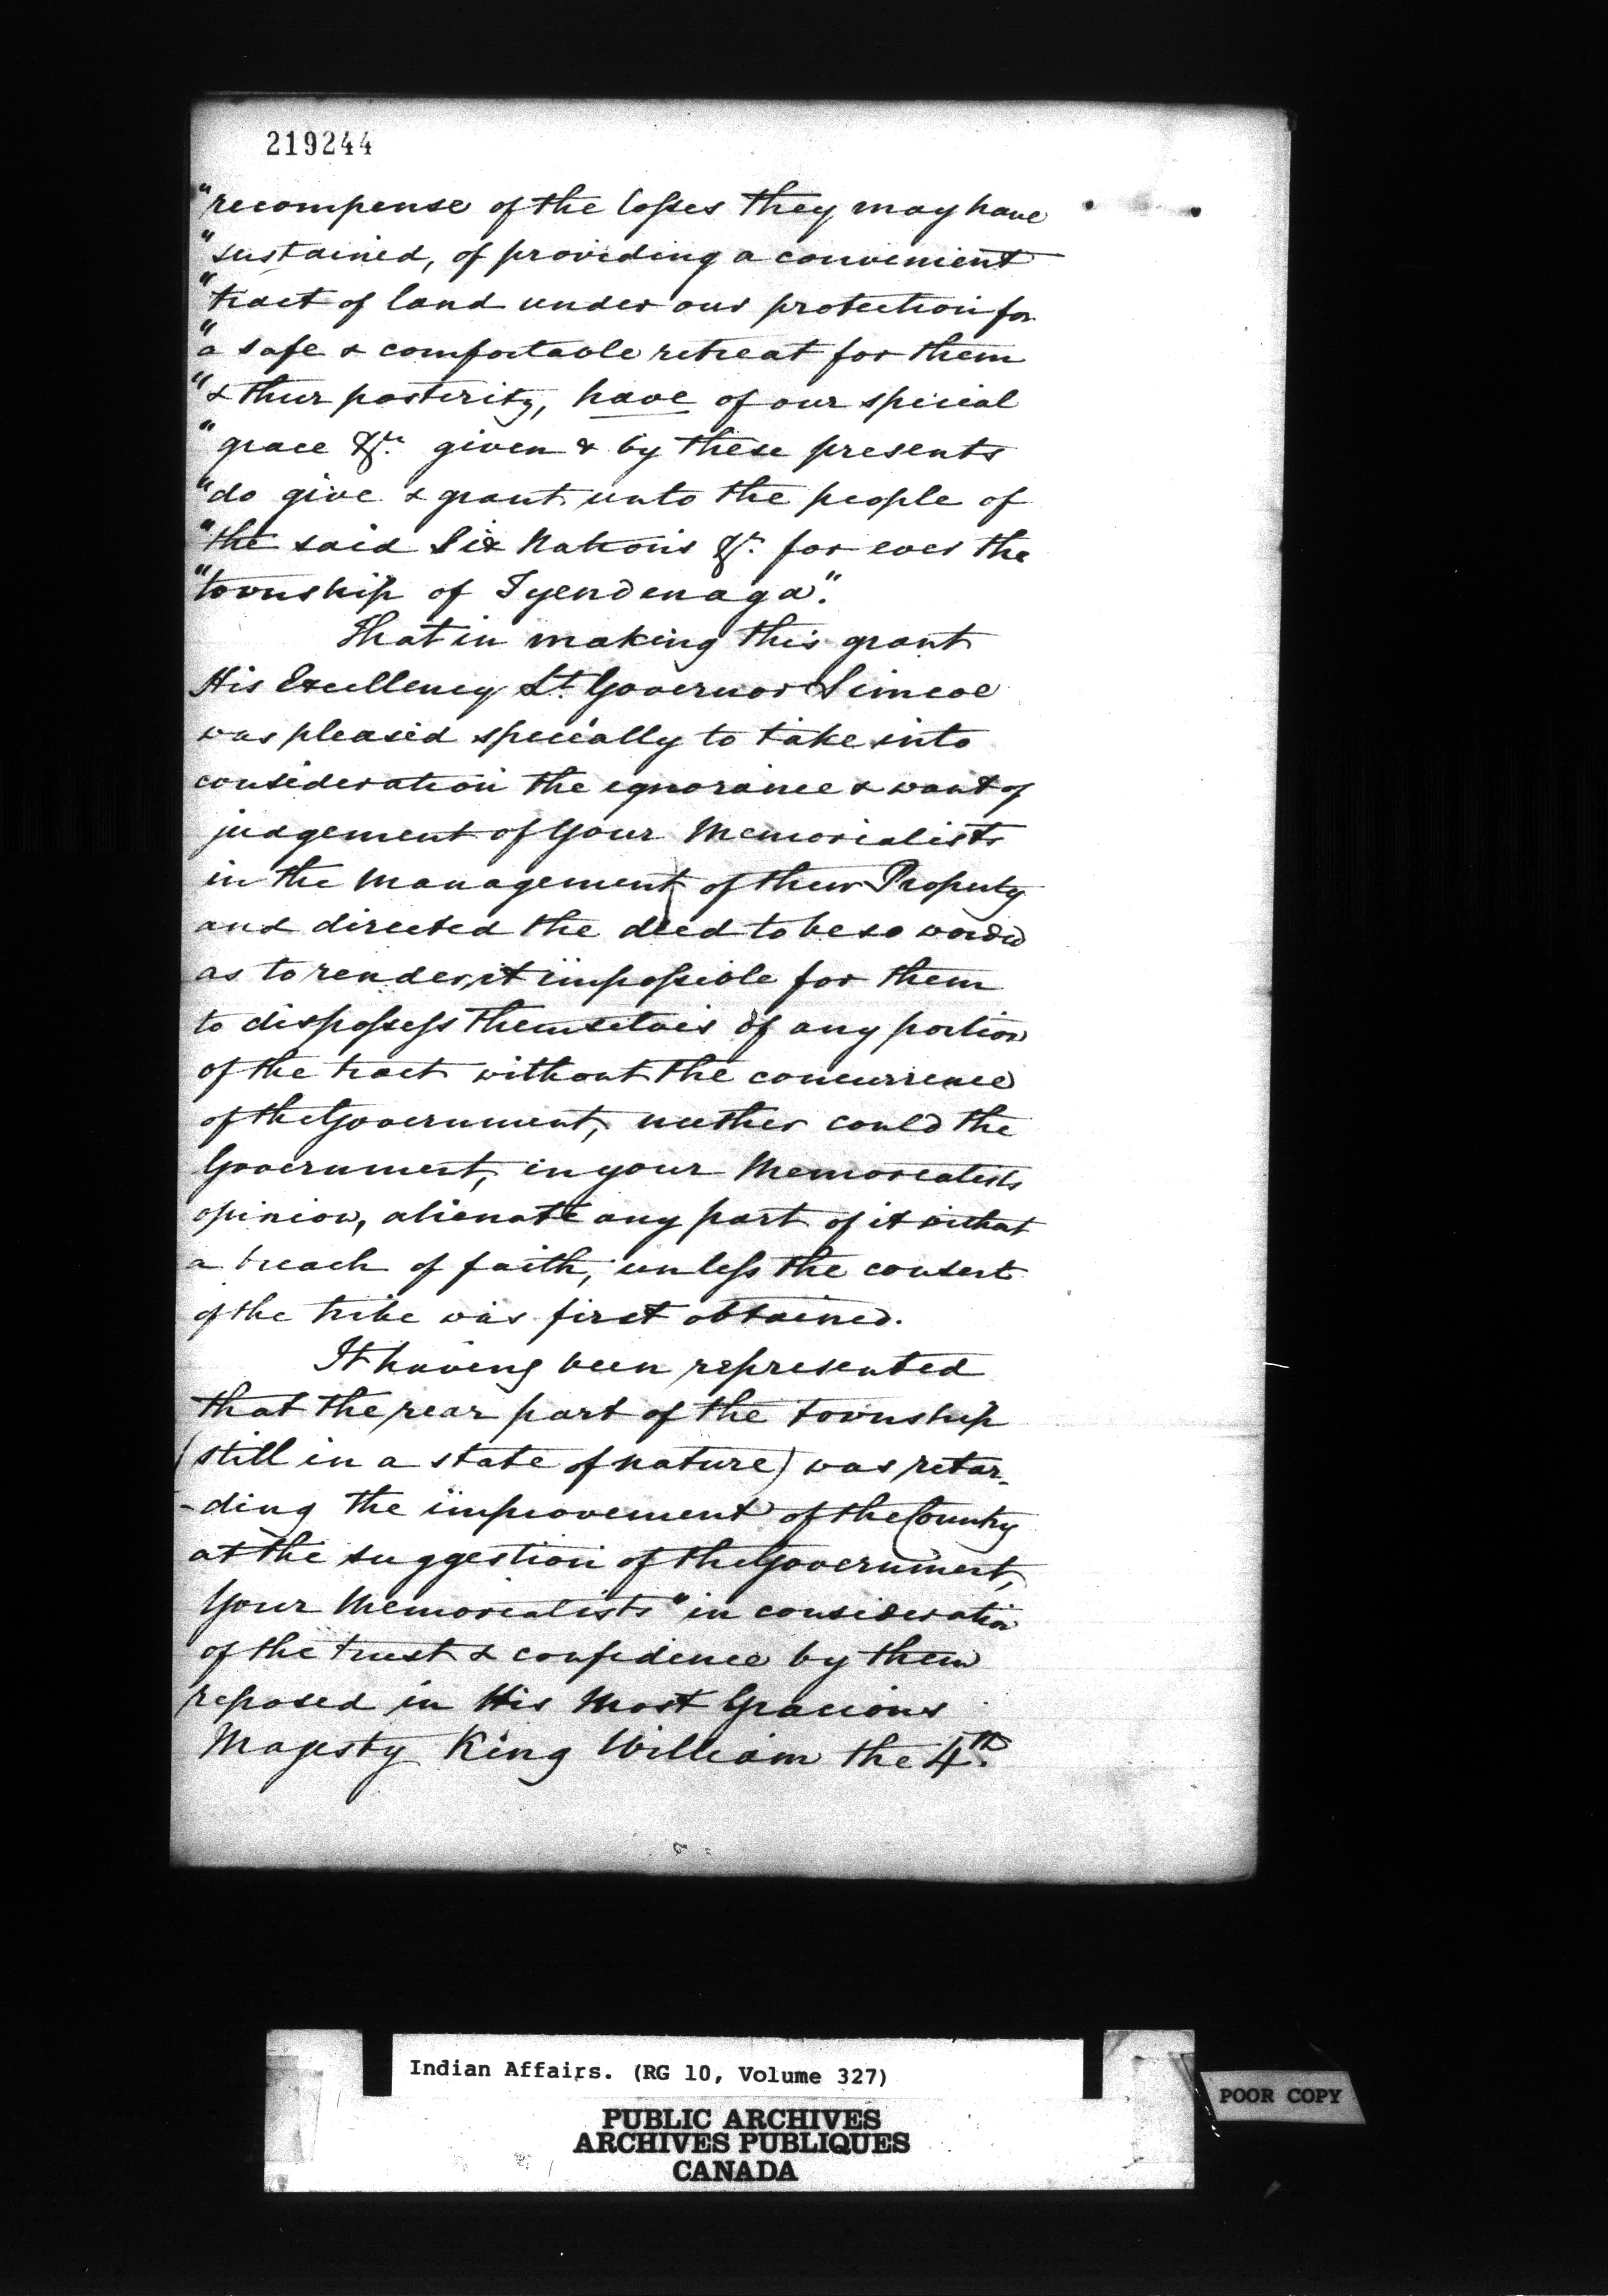 219244
"recompense of the losses they may have
"sustained, of providing a convenient
"tract of land under our protection for
"a safe & comfortable retreat for them
"& their posterity, have of our special
"grace &c. given & by these presents
"do give & grant unto the people of
"the said Six Nations &c. for ever the
"township of Tyendenaga".
That in making this grant
His Excellency Lt. Governor Simcoe
was pleased specially to take into
consideration the ignorance & want of
judgement of Your Memorialists
in the Management of their Property
and directed the deed to be so worded
as to render it impossible for them
to dispossess themselves of any portion
of the tract without the concurrence
of the Government, neither could the
Government, in your Memorialists
opinion, alienate any part of it without
a breach of faith, unless the consent
of the tribe was first obtained.
It having been represented
that the rear part of the township
(still in a state of nature) was retar-
-ding the improvement of the Country
at the suggestion of the Government,
Your Memorialists "in consideration
of the trust & confidence by them
reposed in His Most Gracious
Majesty King William the 4th.
Indian Affairs. (RG 10, Volume 327)
PUBLIC ARCHIVES
ARCHIVES PUBLIQUES
CANADA
POOR COPY